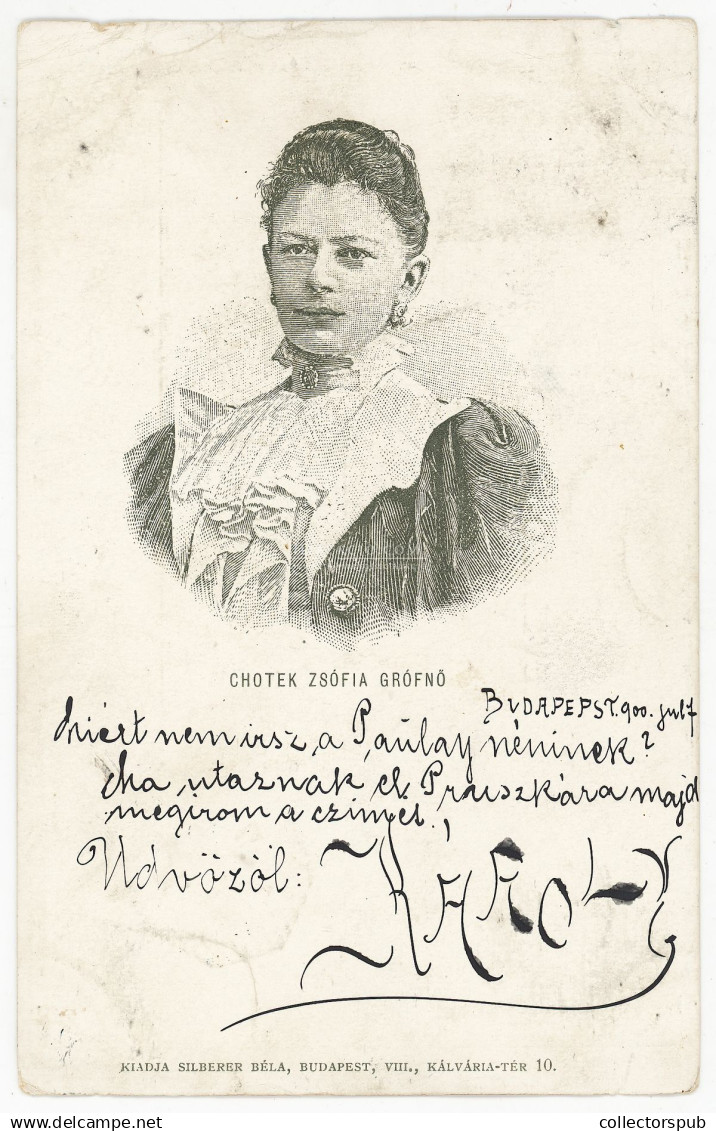 CHOTEK ZSÓFIA GRÓFNŐ
BUDAPEPST. 900. jul 7
Miért nem irsz, a Paulay néninek?
Ma utaznak el Pruszkára majd
megirom a czimét,
Üdvözöl:
Károly
KIADJA SILBERER BÉLA, BUDAPEST, VIII., KÁLVÁRIA-TÉR 10.
www.hungaricana.com
collectorspub